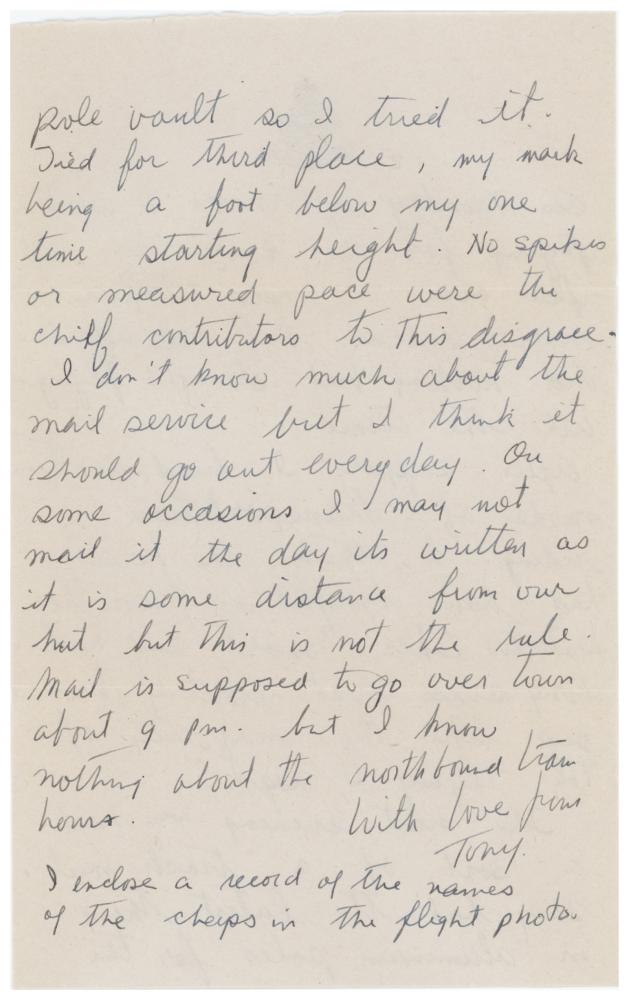 pole vault so I tried it.
Tied for third place, my mark
being a foot below my one
time starting height. No spikes
or measured pace were the
chiff contributors to this disgrace.
I don't know much about the
mail service but I think it
should go out everyday. On
some occasions I may not
mail it the day its written as
it is some distance from our
hut but this is not the rule.
Mail is supposed to go over town
about 9 pm. but I know
nothing about the northbound train
hours. With love from
Tony.
I enclose a record of the names
of the chaps in the flight photo.